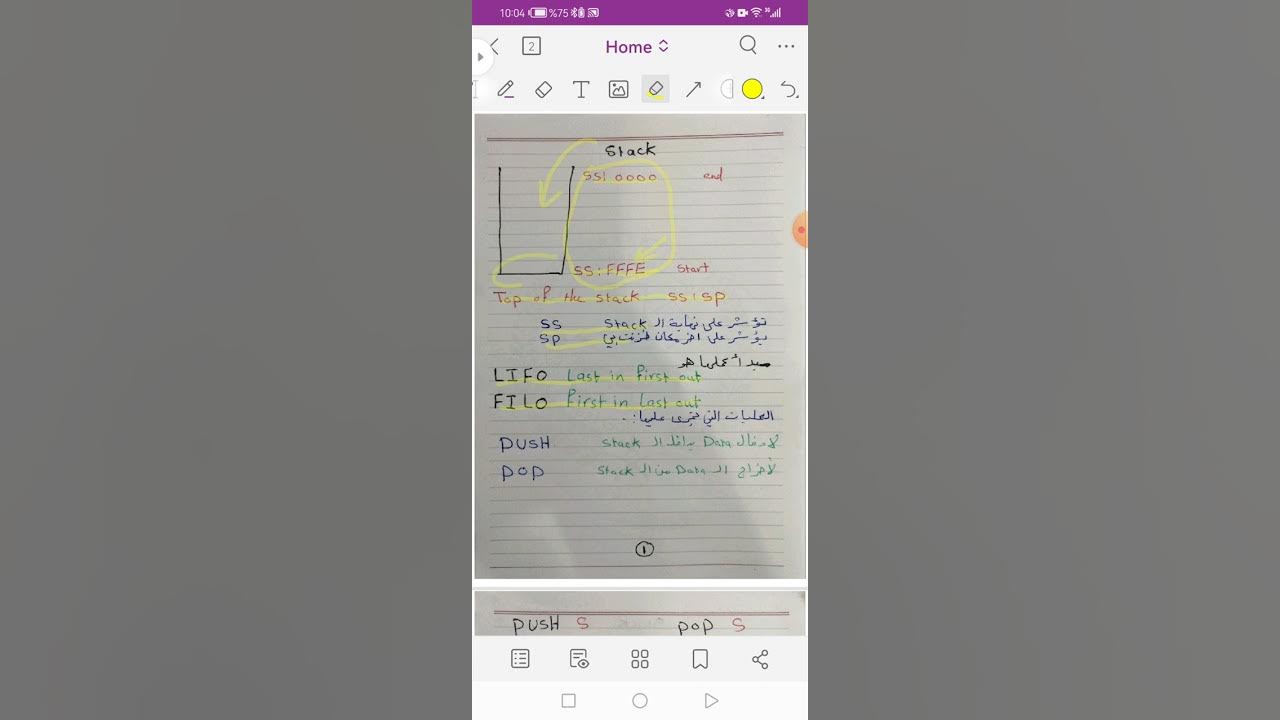 10:04 %75
2 Home
Stack
SS:0000 end
SS:FFFE Start
Top of the stack SS:SP
SS تؤشر على نهاية الـ Stack
SP يؤشر على اخر مكان خزنت بي
مبدأ عملها هو
LIFO Last in First out
FILO First in Last out
العمليات التي تجرى عليها:
PUSH لادخال Data بداخل الـ Stack
POP لأخراج الـ Data من الـ Stack
1
PUSH S POP S